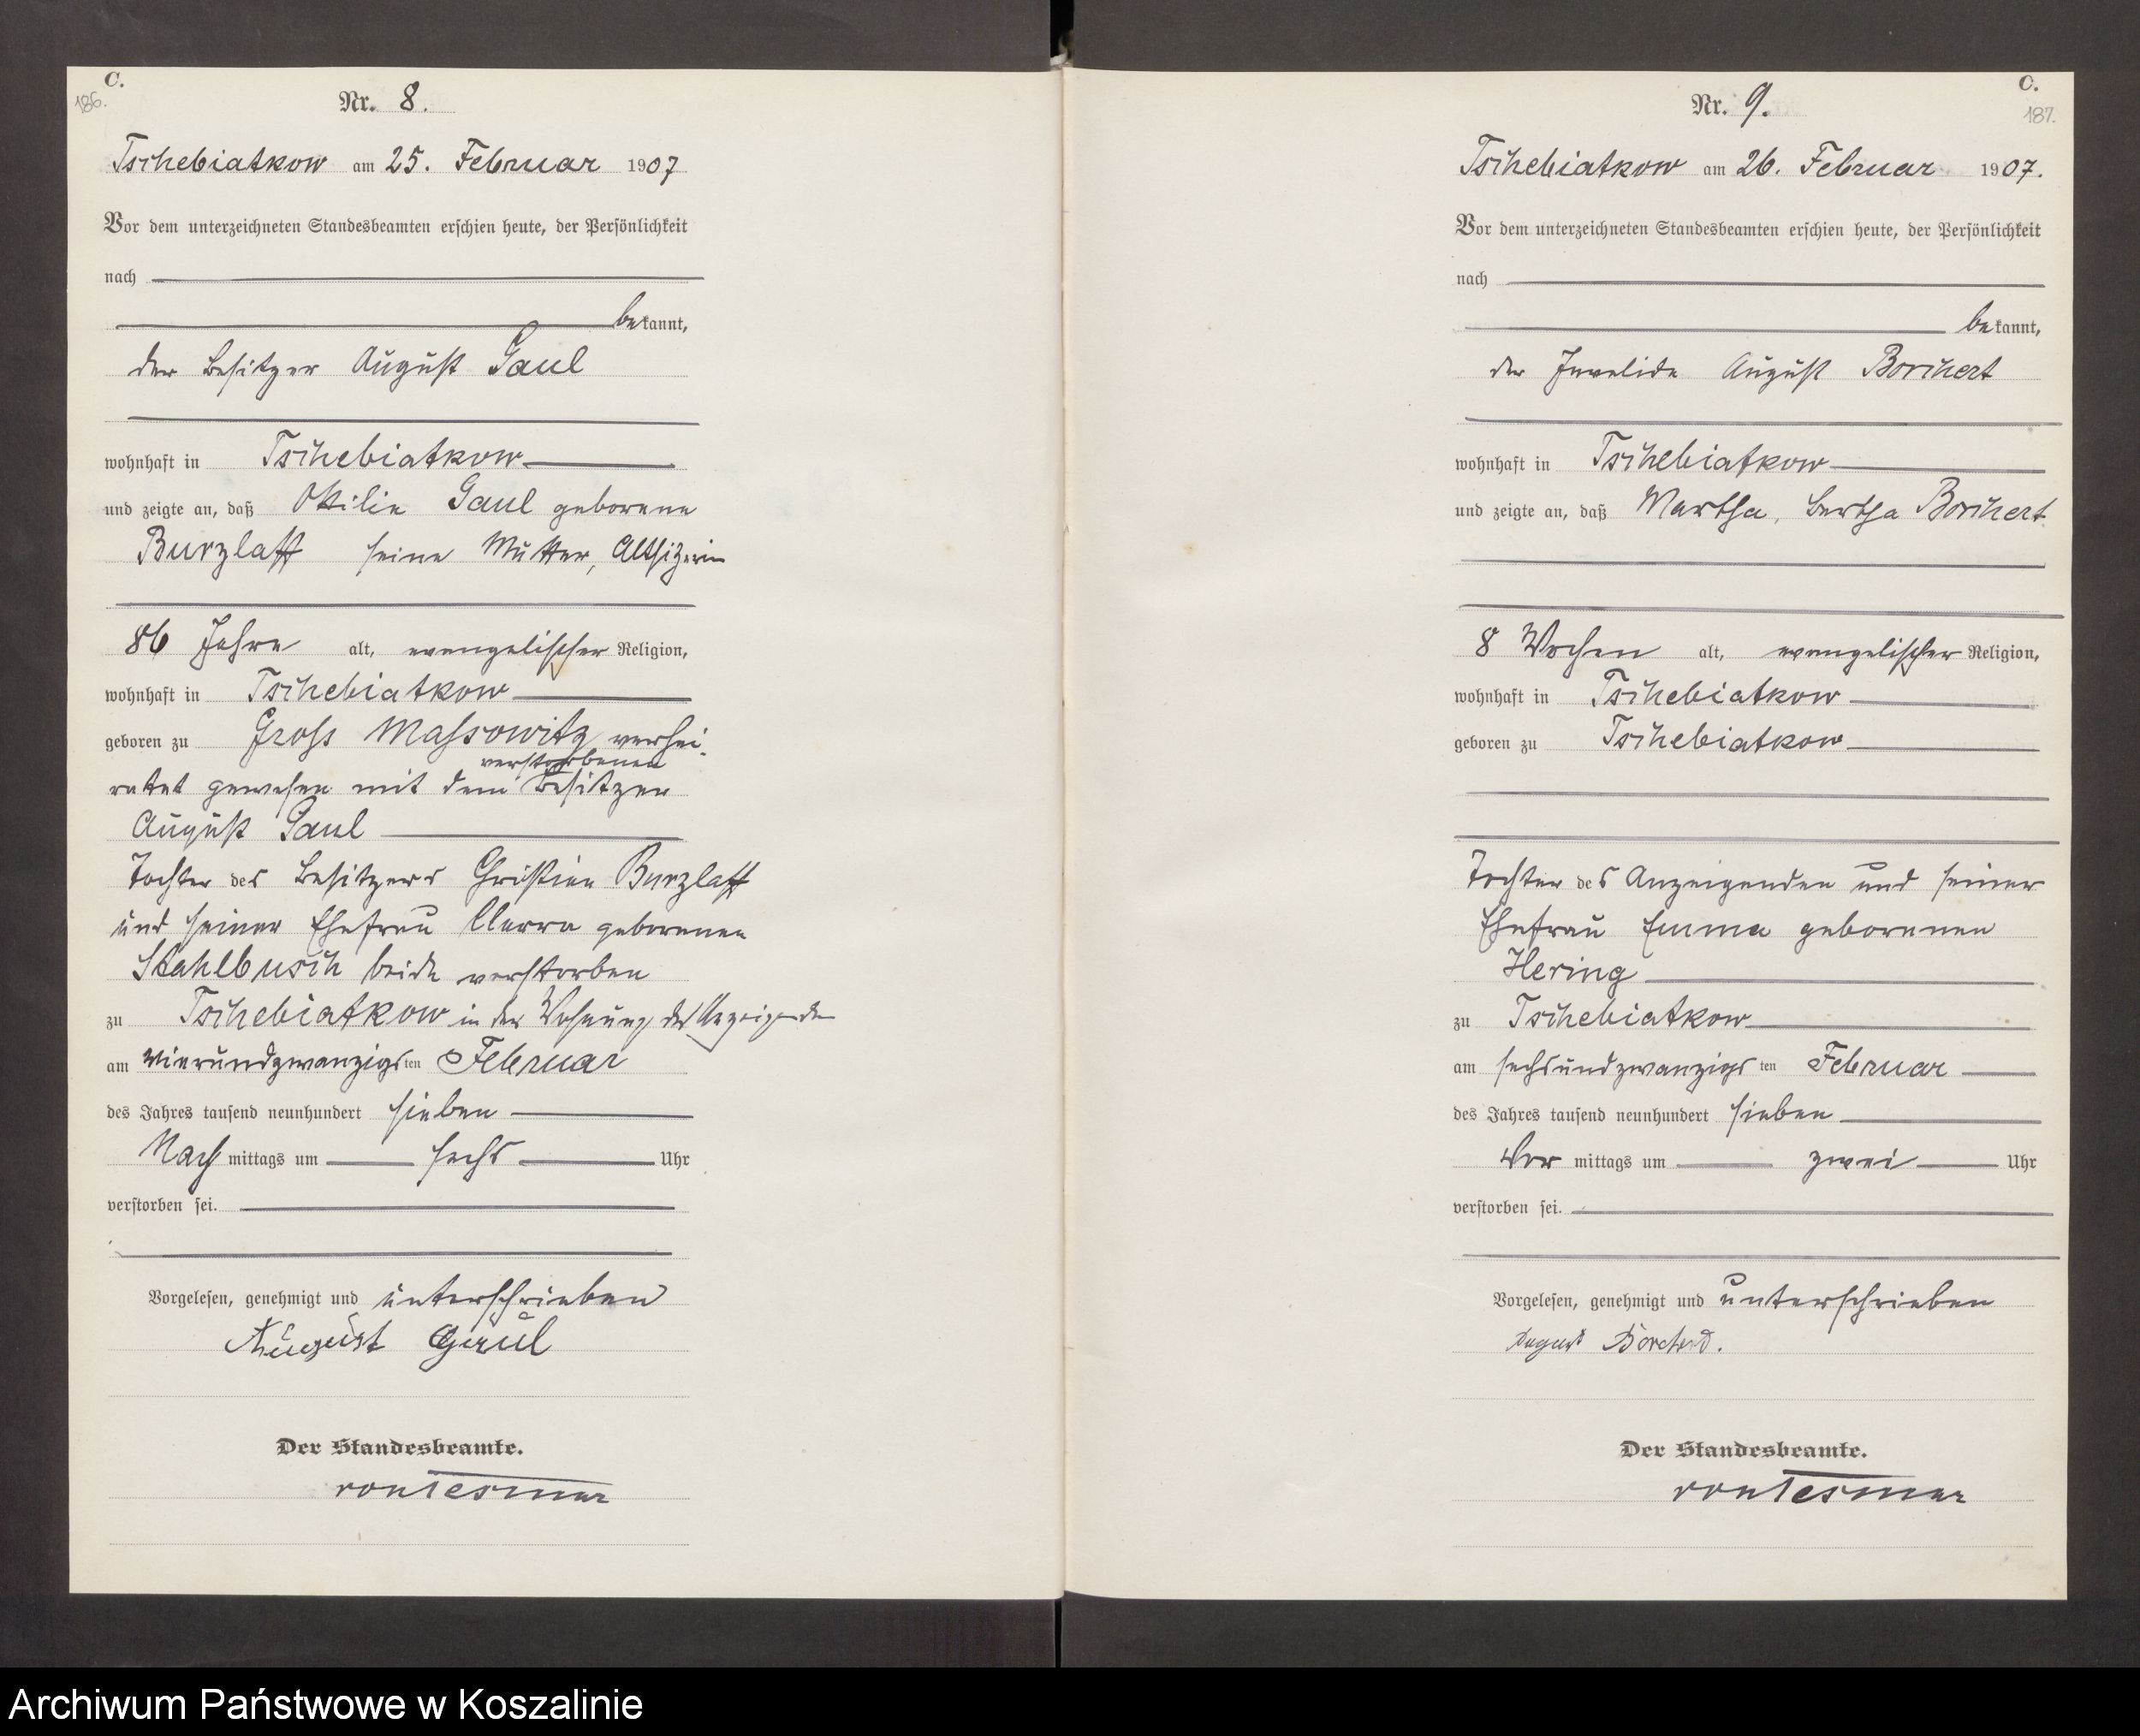 C.
186.
Nr. 8.
Tschebiatkow am 25. Februar 1907
Vor dem unterzeichneten Standesbeamten erschien heute, der Persönlichkeit
nach
bekannt,
der Besitzer August Gaul
wohnhaft in Tschebiatkow
und zeigte an, daß Ottilie Gaul geborene
Burzlaff seine Mutter, Altsitzerin
86 Jahre alt, evangelischer Religion,
wohnhaft in Tschebiatkow
geboren zu Gross Massowitz verhei-
verstorbenen
ratet gewesen mit dem Besitzer
August Gaul
Tochter des Besitzers Christian Burzlaff
und seiner Ehefrau geborenen
Stahlbusch beide verstorben
zu Tschebiatkow in der Wohnung des Anzeigenden
am vierundzwanzigsten Februar
des Jahres tausend neunhundert sieben
Nachmittags um sechs Uhr
verstorben sei.
Vorgelesen, genehmigt und unterschrieben
August Gaul
Der Standesbeamte.
von Tesmar
C.
187.
Nr. 9.
Tschebiatkow am 26. Februar 1907.
Vor dem unterzeichneten Standesbeamten erschien heute, der Persönlichkeit
nach
bekannt,
der Invalide August Borchert
wohnhaft in Tschebiatkow
und zeigte an, daß Martha, Bertha Borchert
8 Wochen alt, evangelischer Religion,
wohnhaft in Tschebiatkow
geboren zu Tschebiatkow
Tochter des Anzeigenden und seiner
Ehefrau Emma geborenen
Hering
zu Tschebiatkow
am sechsundzwanzigsten Februar
des Jahres tausend neunhundert sieben
Vormittags um zwei Uhr
verstorben sei.
Vorgelesen, genehmigt und unterschrieben
August Borcherd.
Der Standesbeamte.
von Tesmar
Archiwum Państwowe w Koszalinie